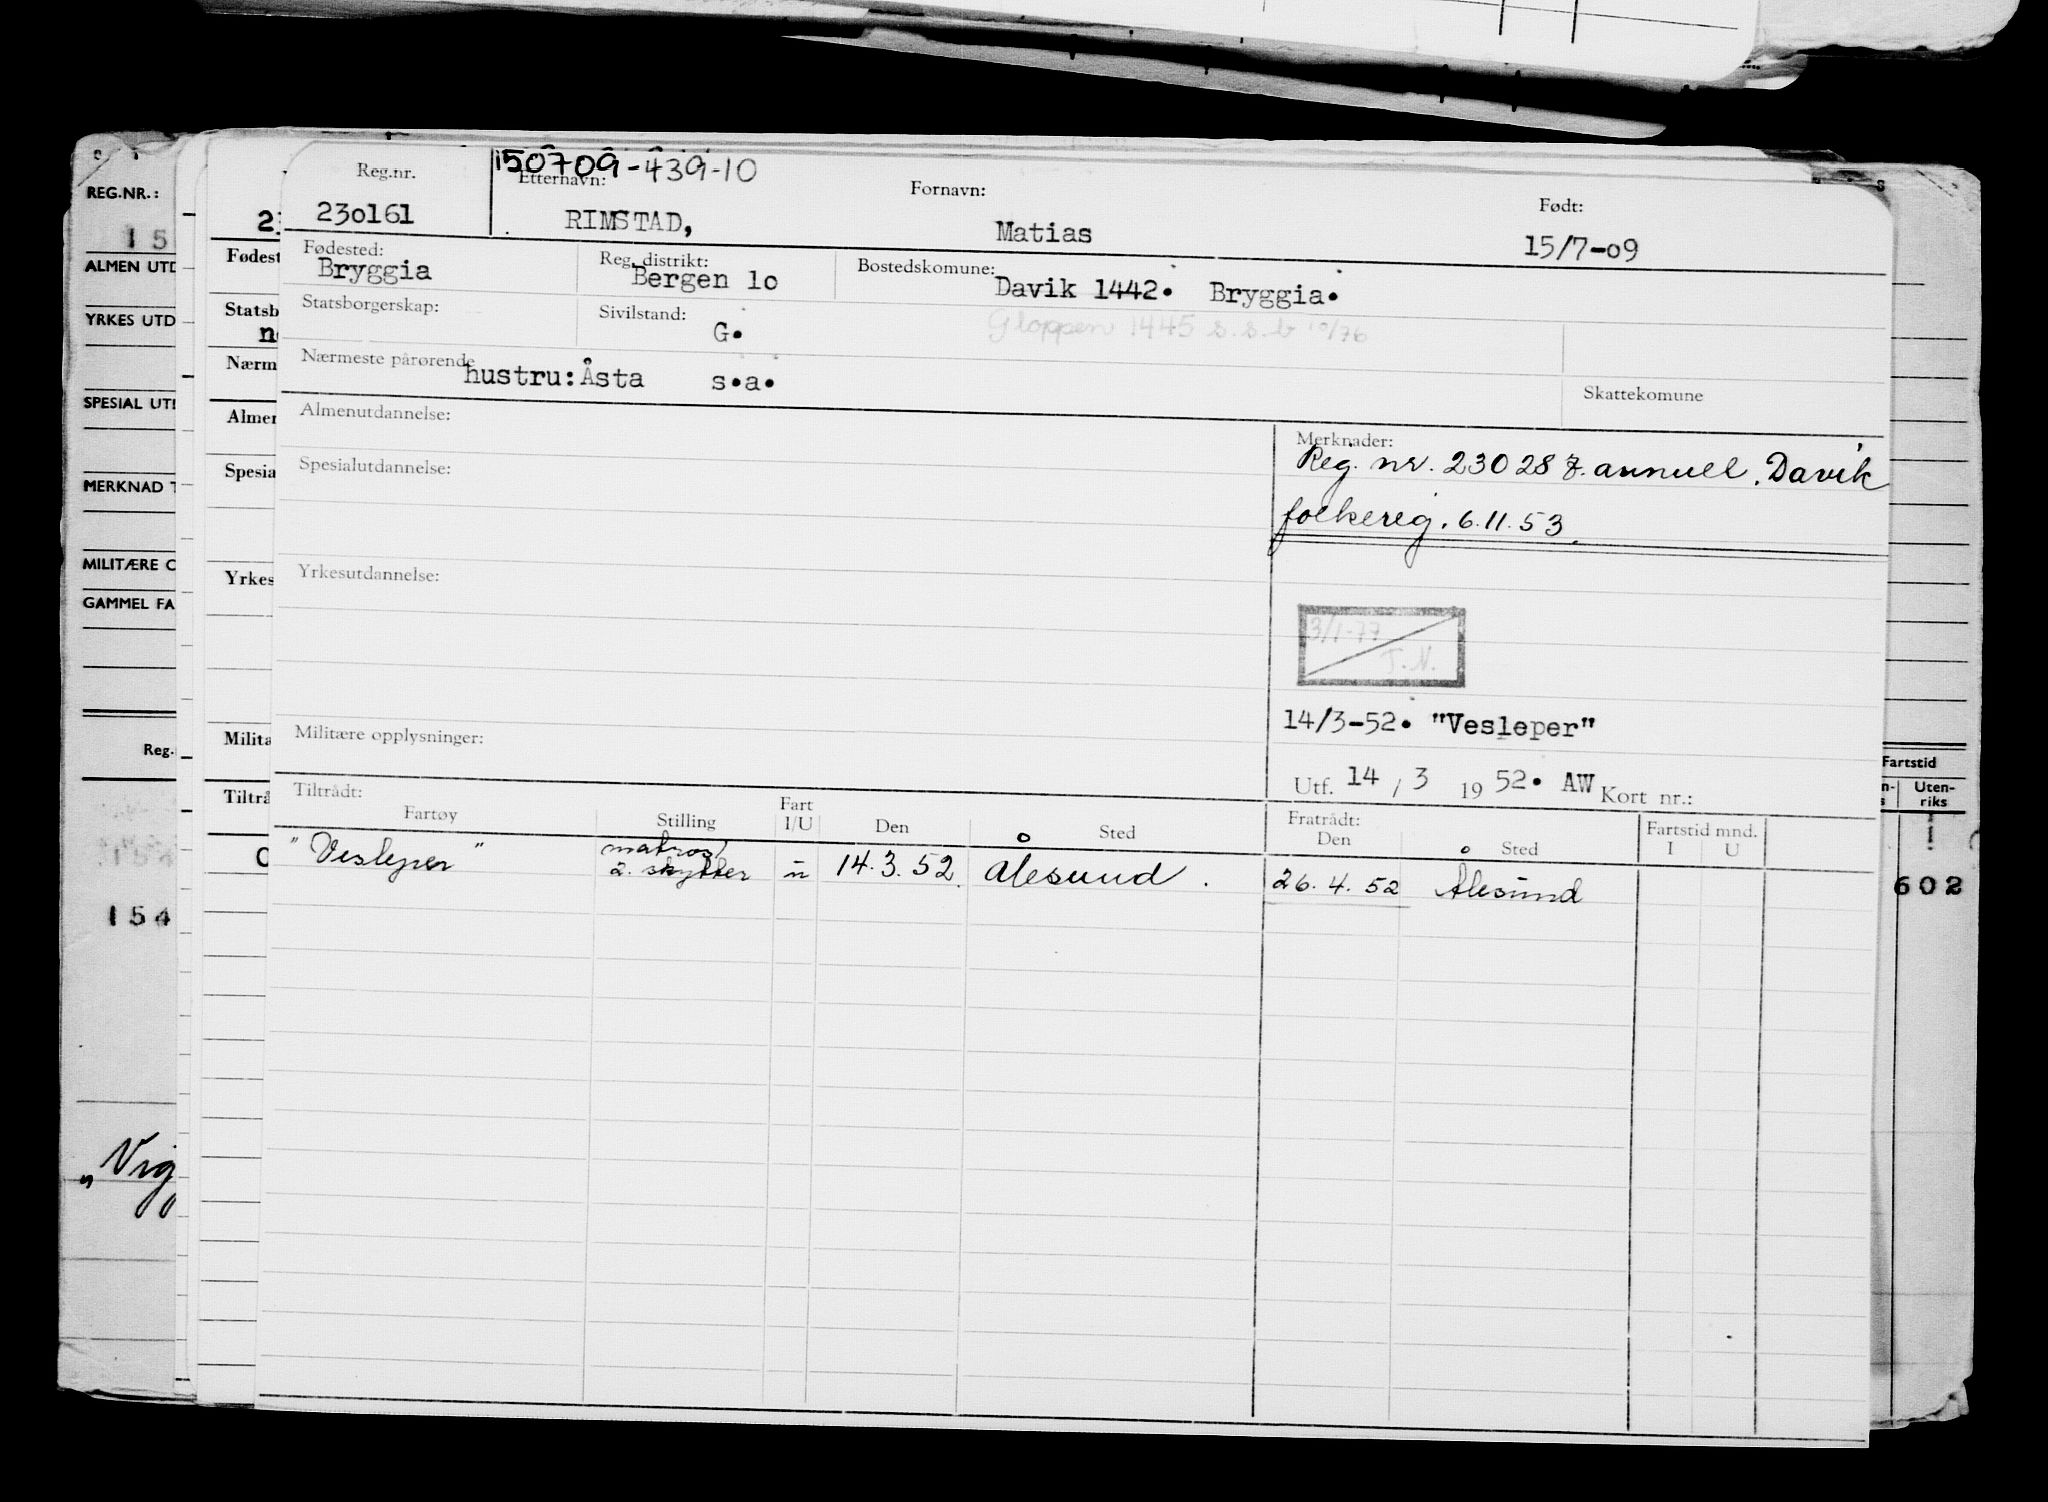 REG.NR.:
15
ALMEN UTD
YRKES UTD
SPESIAL UTD
MERKNAD T
MILITÆRE O
GAMMEL FA
Reg.
154
"Vig
Fødest
Statsb
Nærm
Almen
Spesia
Yrkes
Milita
Tiltrå
Reg.nr. 150709-439-10
Etternavn: Fornavn: Født:
230161 RIMSTAD, Matias 15/7-09
Fødested: Reg. distrikt: Bostedskomune:
Bryggia Bergen 10 Davik 1442. Bryggia.
Statsborgerskap: Sivilstand: G. Gloppen 1445 s.s.b 10/76
Nærmeste pårørende hustru: Åsta s.a. Skattekomune
Almenutdannelse: Merknader:
Reg. nr. 230287. annuell. Davik
Spesialutdannelse:
folkereg. 6.11.53.
Yrkesutdannelse:
3/1-77
T.N.
14/3-52. "Vesleper"
Militære opplysninger:
Utf. 14 / 3 1952. AW Kort nr.:
Tiltrådt: Fratrådt: Fartstid mnd.
Fartøy Stilling Fart I/U Den Sted Den Sted I U
"Vesleper" matros/ 2. skytter u 14.3.52. Ålesund. 26.4.52 Ålesund
Fartstid
Uten-
riks
602